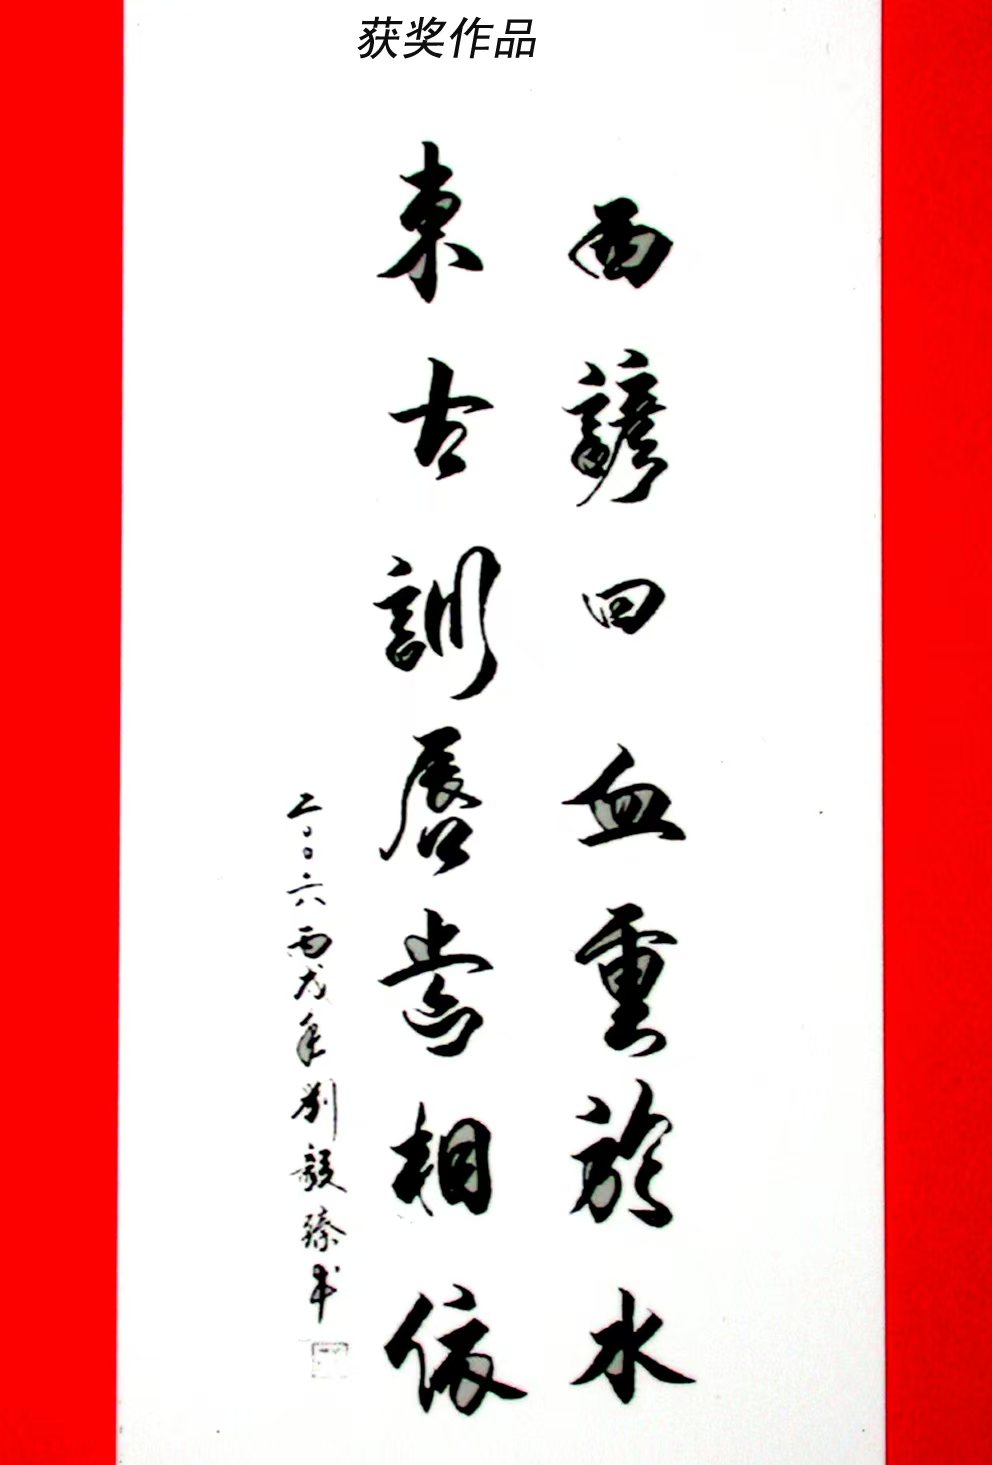 获奖作品
西諺曰血重於水
東古訓唇齿相依
二〇〇六丙戌年劉毅臻书